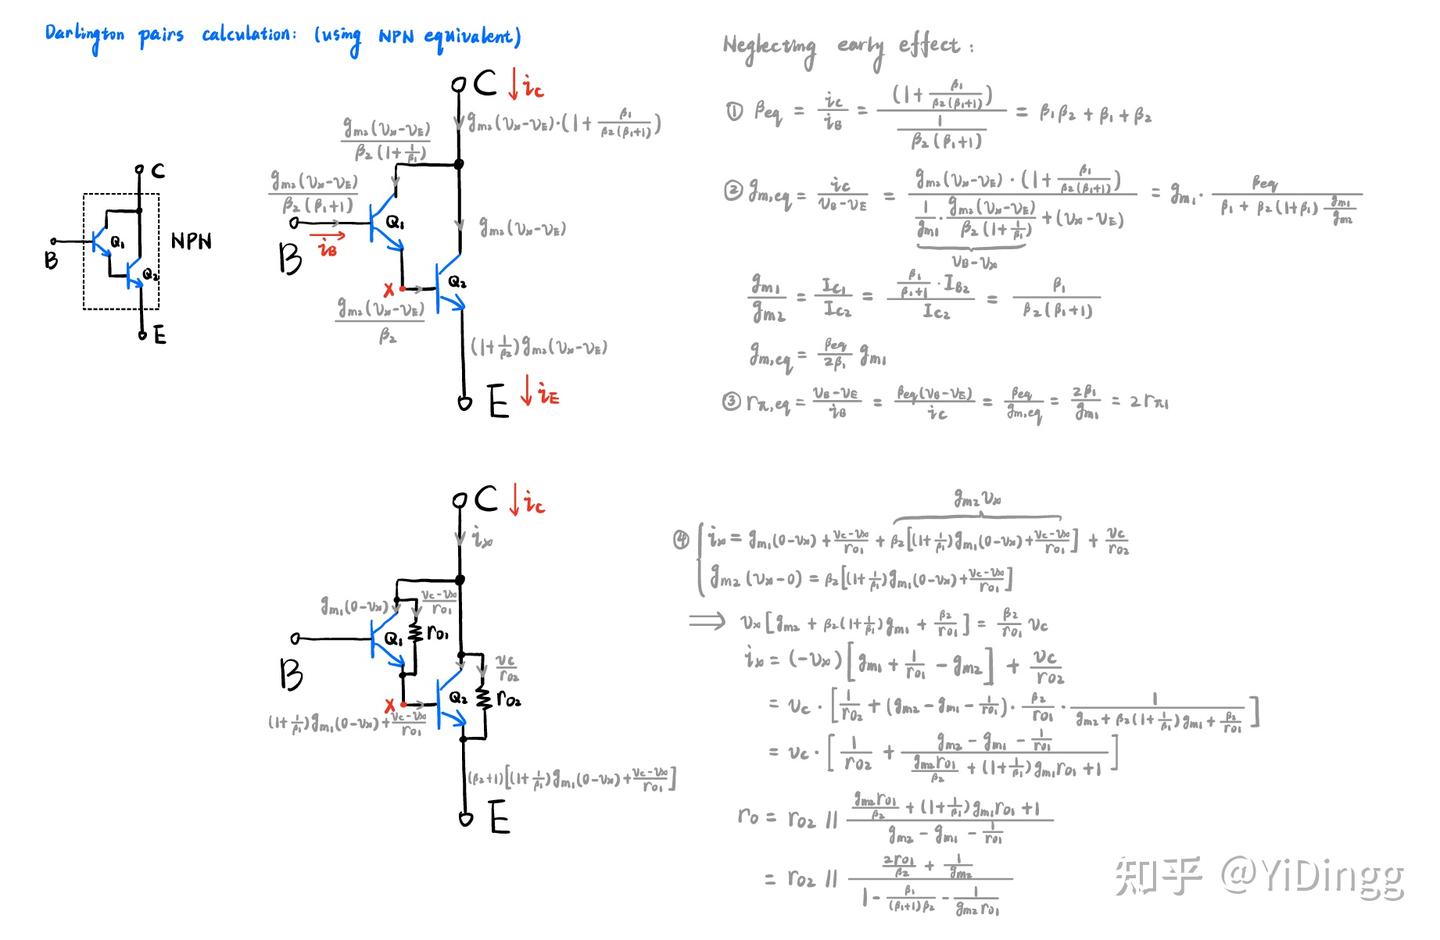 Darlington pairs calculation: (using NPN equivalent)
C
B
Q₁
Q₂
NPN
E
C ↓ i_C
g_m₂(v_x-v_E)·(1+β₁/(β₂(β₁+1)))
g_m₂(v_x-v_E)/(β₂(1+1/β₁))
g_m₂(v_x-v_E)/(β₂(β₁+1))
Q₁
B
i_B
g_m₂(v_x-v_E)
X
Q₂
g_m₂(v_x-v_E)/β₂
(1+1/β₂)g_m₂(v_x-v_E)
E ↓ i_E
Neglecting early effect:
① β_eq = i_C/i_B = (1+β₁/(β₂(β₁+1)))/(1/(β₂(β₁+1))) = β₁β₂+β₁+β₂
② g_m,eq = i_C/(v_B-v_E) = g_m₂(v_x-v_E)·(1+β₁/(β₂(β₁+1)))/(1/g_m₁·g_m₂(v_x-v_E)/(β₂(1+1/β₁))+(v_x-v_E)) = g_m₁·β_eq/(β₁+β₂(1+β₁)g_m₁/g_m₂)
v_B-v_x
g_m₁/g_m₂ = I_C₁/I_C₂ = (β₁/(β₁+1)·I_B₂)/I_C₂ = β₁/(β₂(β₁+1))
g_m,eq = β_eq/2β₁ g_m₁
③ r_π,eq = (v_B-v_E)/i_B = β_eq(v_B-v_E)/i_C = β_eq/g_m,eq = 2β₁/g_m₁ = 2r_π₁
C ↓ i_C
i_x
g_m₁(0-v_x)
(v_C-v_x)/r_O₁
Q₁
r_O₁
B
v_C/r_O₂
X
Q₂
r_O₂
(1+1/β₁)g_m₁(0-v_x)+(v_C-v_x)/r_O₁
(β₂+1)[(1+1/β₁)g_m₁(0-v_x)+(v_C-v_x)/r_O₁]
E
g_m₂v_x
④ { i_x = g_m₁(0-v_x)+(v_C-v_x)/r_O₁+β₂[(1+1/β₁)g_m₁(0-v_x)+(v_C-v_x)/r_O₁]+v_C/r_O₂
g_m₂(v_x-0) = β₂[(1+1/β₁)g_m₁(0-v_x)+(v_C-v_x)/r_O₁]
⟹ v_x[g_m₂+β₂(1+1/β₁)g_m₁+β₂/r_O₁] = β₂/r_O₁ v_C
i_x = (-v_x)[g_m₁+1/r_O₁-g_m₂]+v_C/r_O₂
= v_C·[1/r_O₂+(g_m₂-g_m₁-1/r_O₁)·β₂/r_O₁·1/(g_m₂+β₂(1+1/β₁)g_m₁+β₂/r_O₁)]
= v_C·[1/r_O₂+(g_m₂-g_m₁-1/r_O₁)/(g_m₂r_O₁/β₂+(1+1/β₁)g_m₁r_O₁+1)]
r_O = r_O₂ // (g_m₂r_O₁/β₂+(1+1/β₁)g_m₁r_O₁+1)/(g_m₂-g_m₁-1/r_O₁)
= r_O₂ // (2r_O₁/β₂+1/g_m₂)/(1-β₁/((β₁+1)β₂)-1/(g_m₂r_O₁))
知乎 @YiDingg